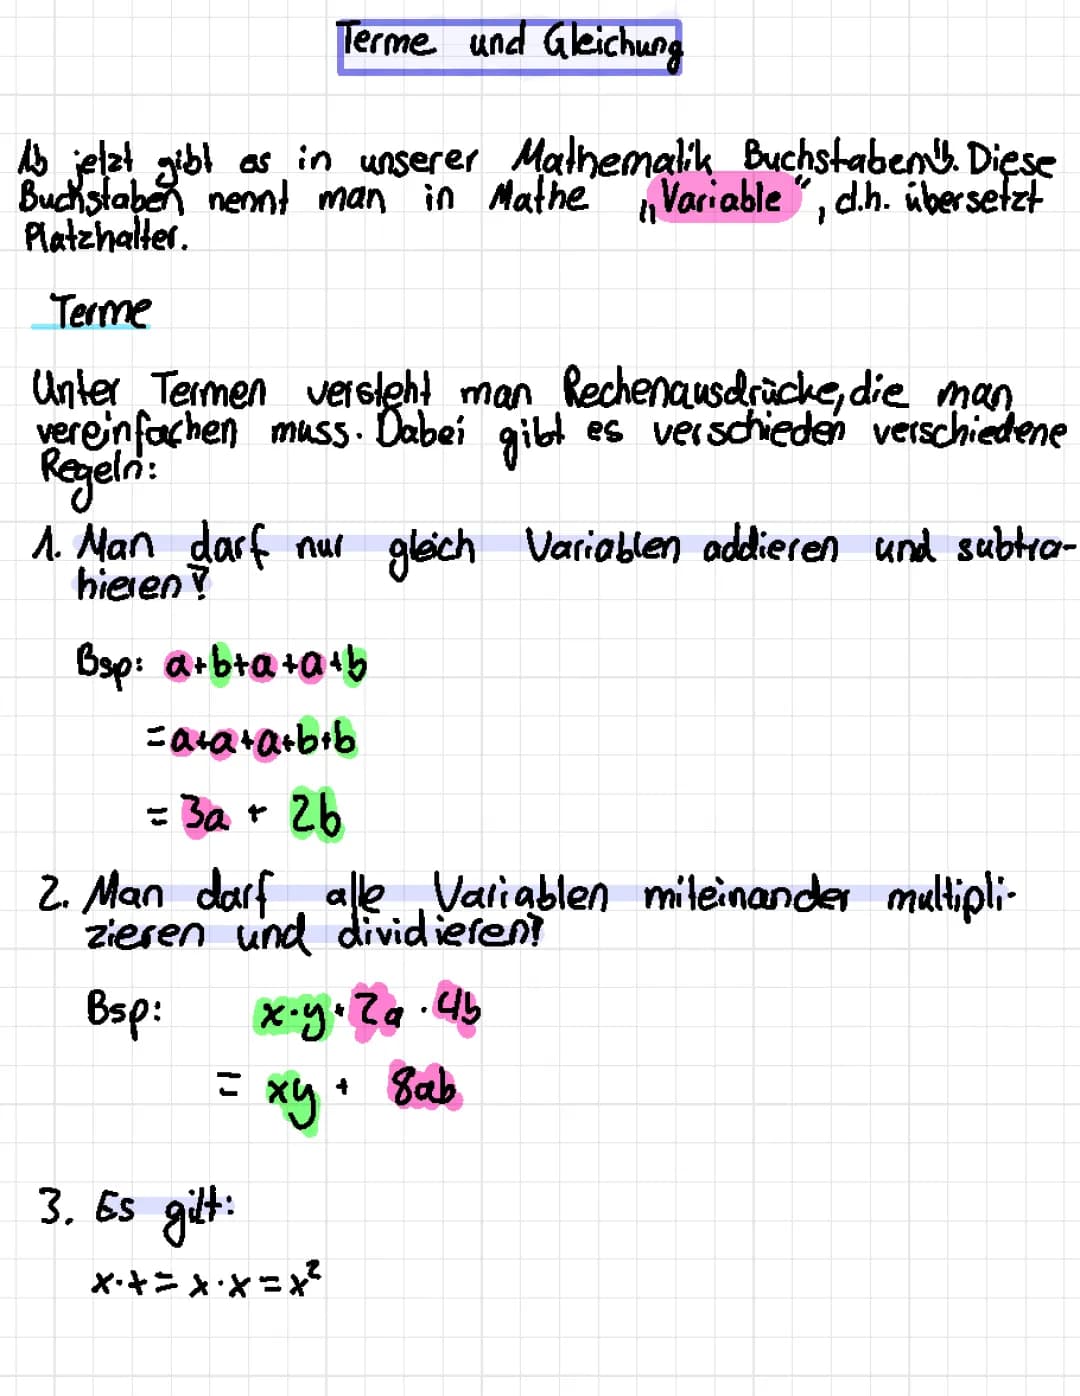 Terme und Gleichung
Ab jetzt gibt es in unserer Mathematik Buchstaben!!. Diese
Buchstaben nennt man in Mathe „Variable“, d.h. übersetzt
Platzhalter.
Terme
Unter Termen versteht man Rechenausdrücke, die man
vereinfachen muss. Dabei gibt es verschieden verschiedene
Regeln:
1. Man darf nur gleich Variablen addieren und subtra-
hieren!
Bsp: a+b+a+a+b
=a+a+a+b+b
= 3a + 2b
2. Man darf alle Variablen miteinander multipli-
zieren und dividieren!
Bsp: x·y+2a·4b
= xy + 8ab
3. Es gilt:
x·x = x·x = x²